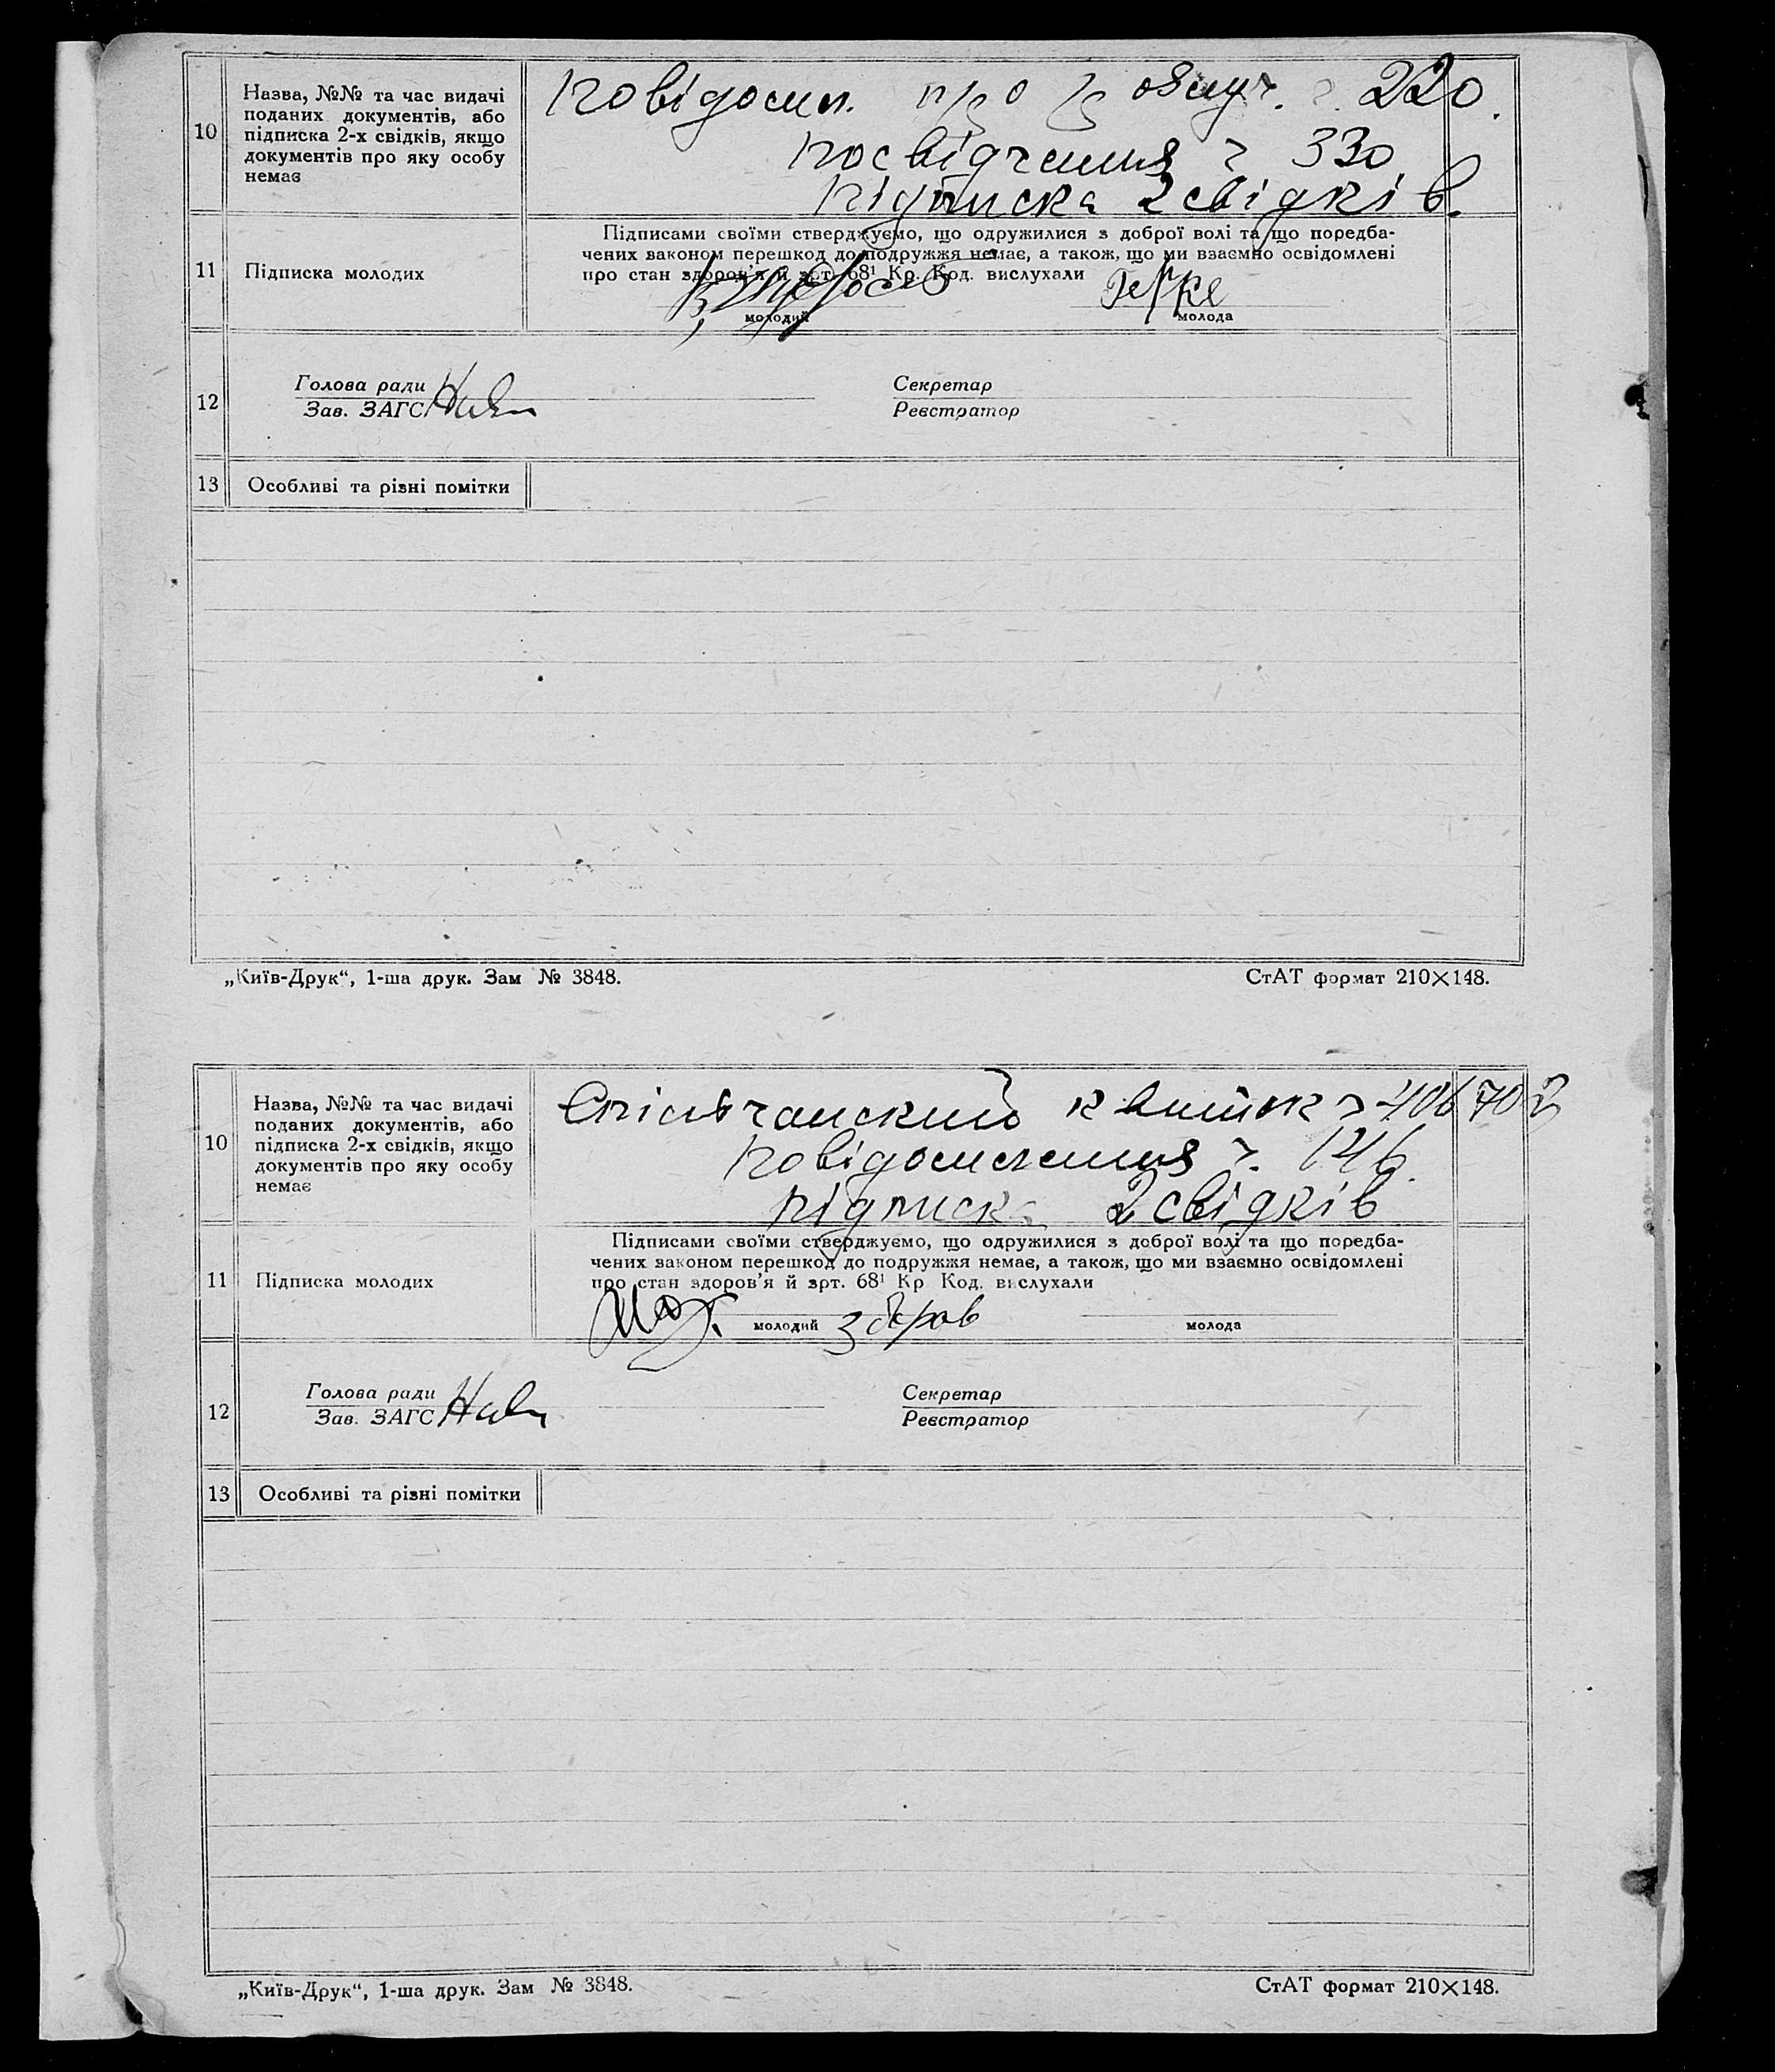 10
Назва, №№ та час видачі
поданих документів, або
підписка 2-х свідків, якщо
документів про яку особу
немає
Повідомл. про 220.
посвідчення ч 330
підписка 2 свідків.
11
Підписка молодих
Підписами своїми стверджуємо, що одружилися з доброї волі та що поредба-
чених законом перешкод до подружжя немає, а також, що ми взаємно освідомлені
про стан здоров'я й зрт. 68¹ Кр. Код. вислухали
молодий
молода
12
Голова ради
Зав. ЗАГС
Секретар
Реєстратор
13
Особливі та різні помітки
„Київ-Друк“, 1-ша друк. Зам № 3848.
СтАТ формат 210×148.
10
Назва, №№ та час видачі
поданих документів, або
підписка 2-х свідків, якщо
документів про яку особу
немає
квиток ч 406702
повідомлення ч. 146.
підписка 2 свідків
11
Підписка молодих
Підписами своїми стверджуємо, що одружилися з доброї волі та що поредба-
чених законом перешкод до подружжя немає, а також, що ми взаємно освідомлені
про стан здоров'я й зрт. 68¹ Кр Код. вислухали
молодий
молода
12
Голова ради
Зав. ЗАГС
Секретар
Реєстратор
13
Особливі та різні помітки
„Київ-Друк“, 1-ша друк. Зам № 3848.
СтАТ формат 210×148.